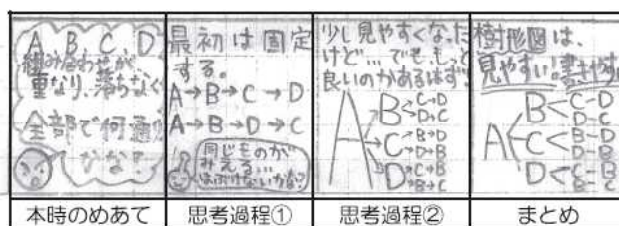 A B C D
組み合わせが、
重なり、落ちなく
全部で何通り
かな?
最初は固定
する。
A→B→C→D
A→B→D→C
同じものが
みえる…
はぶけないかな?
少し見やすくなった
けど…でも、もっと
良いのかあるはず!
A→B→C→D
D→C
→C→B→D
D→B
→D→C→B
B→C
樹形図は、
見やすい!書きやすい
A<B<C-D
D-C
C<B-D
D-B
D<C-B
B-C
本時のめあて
思考過程①
思考過程②
まとめ